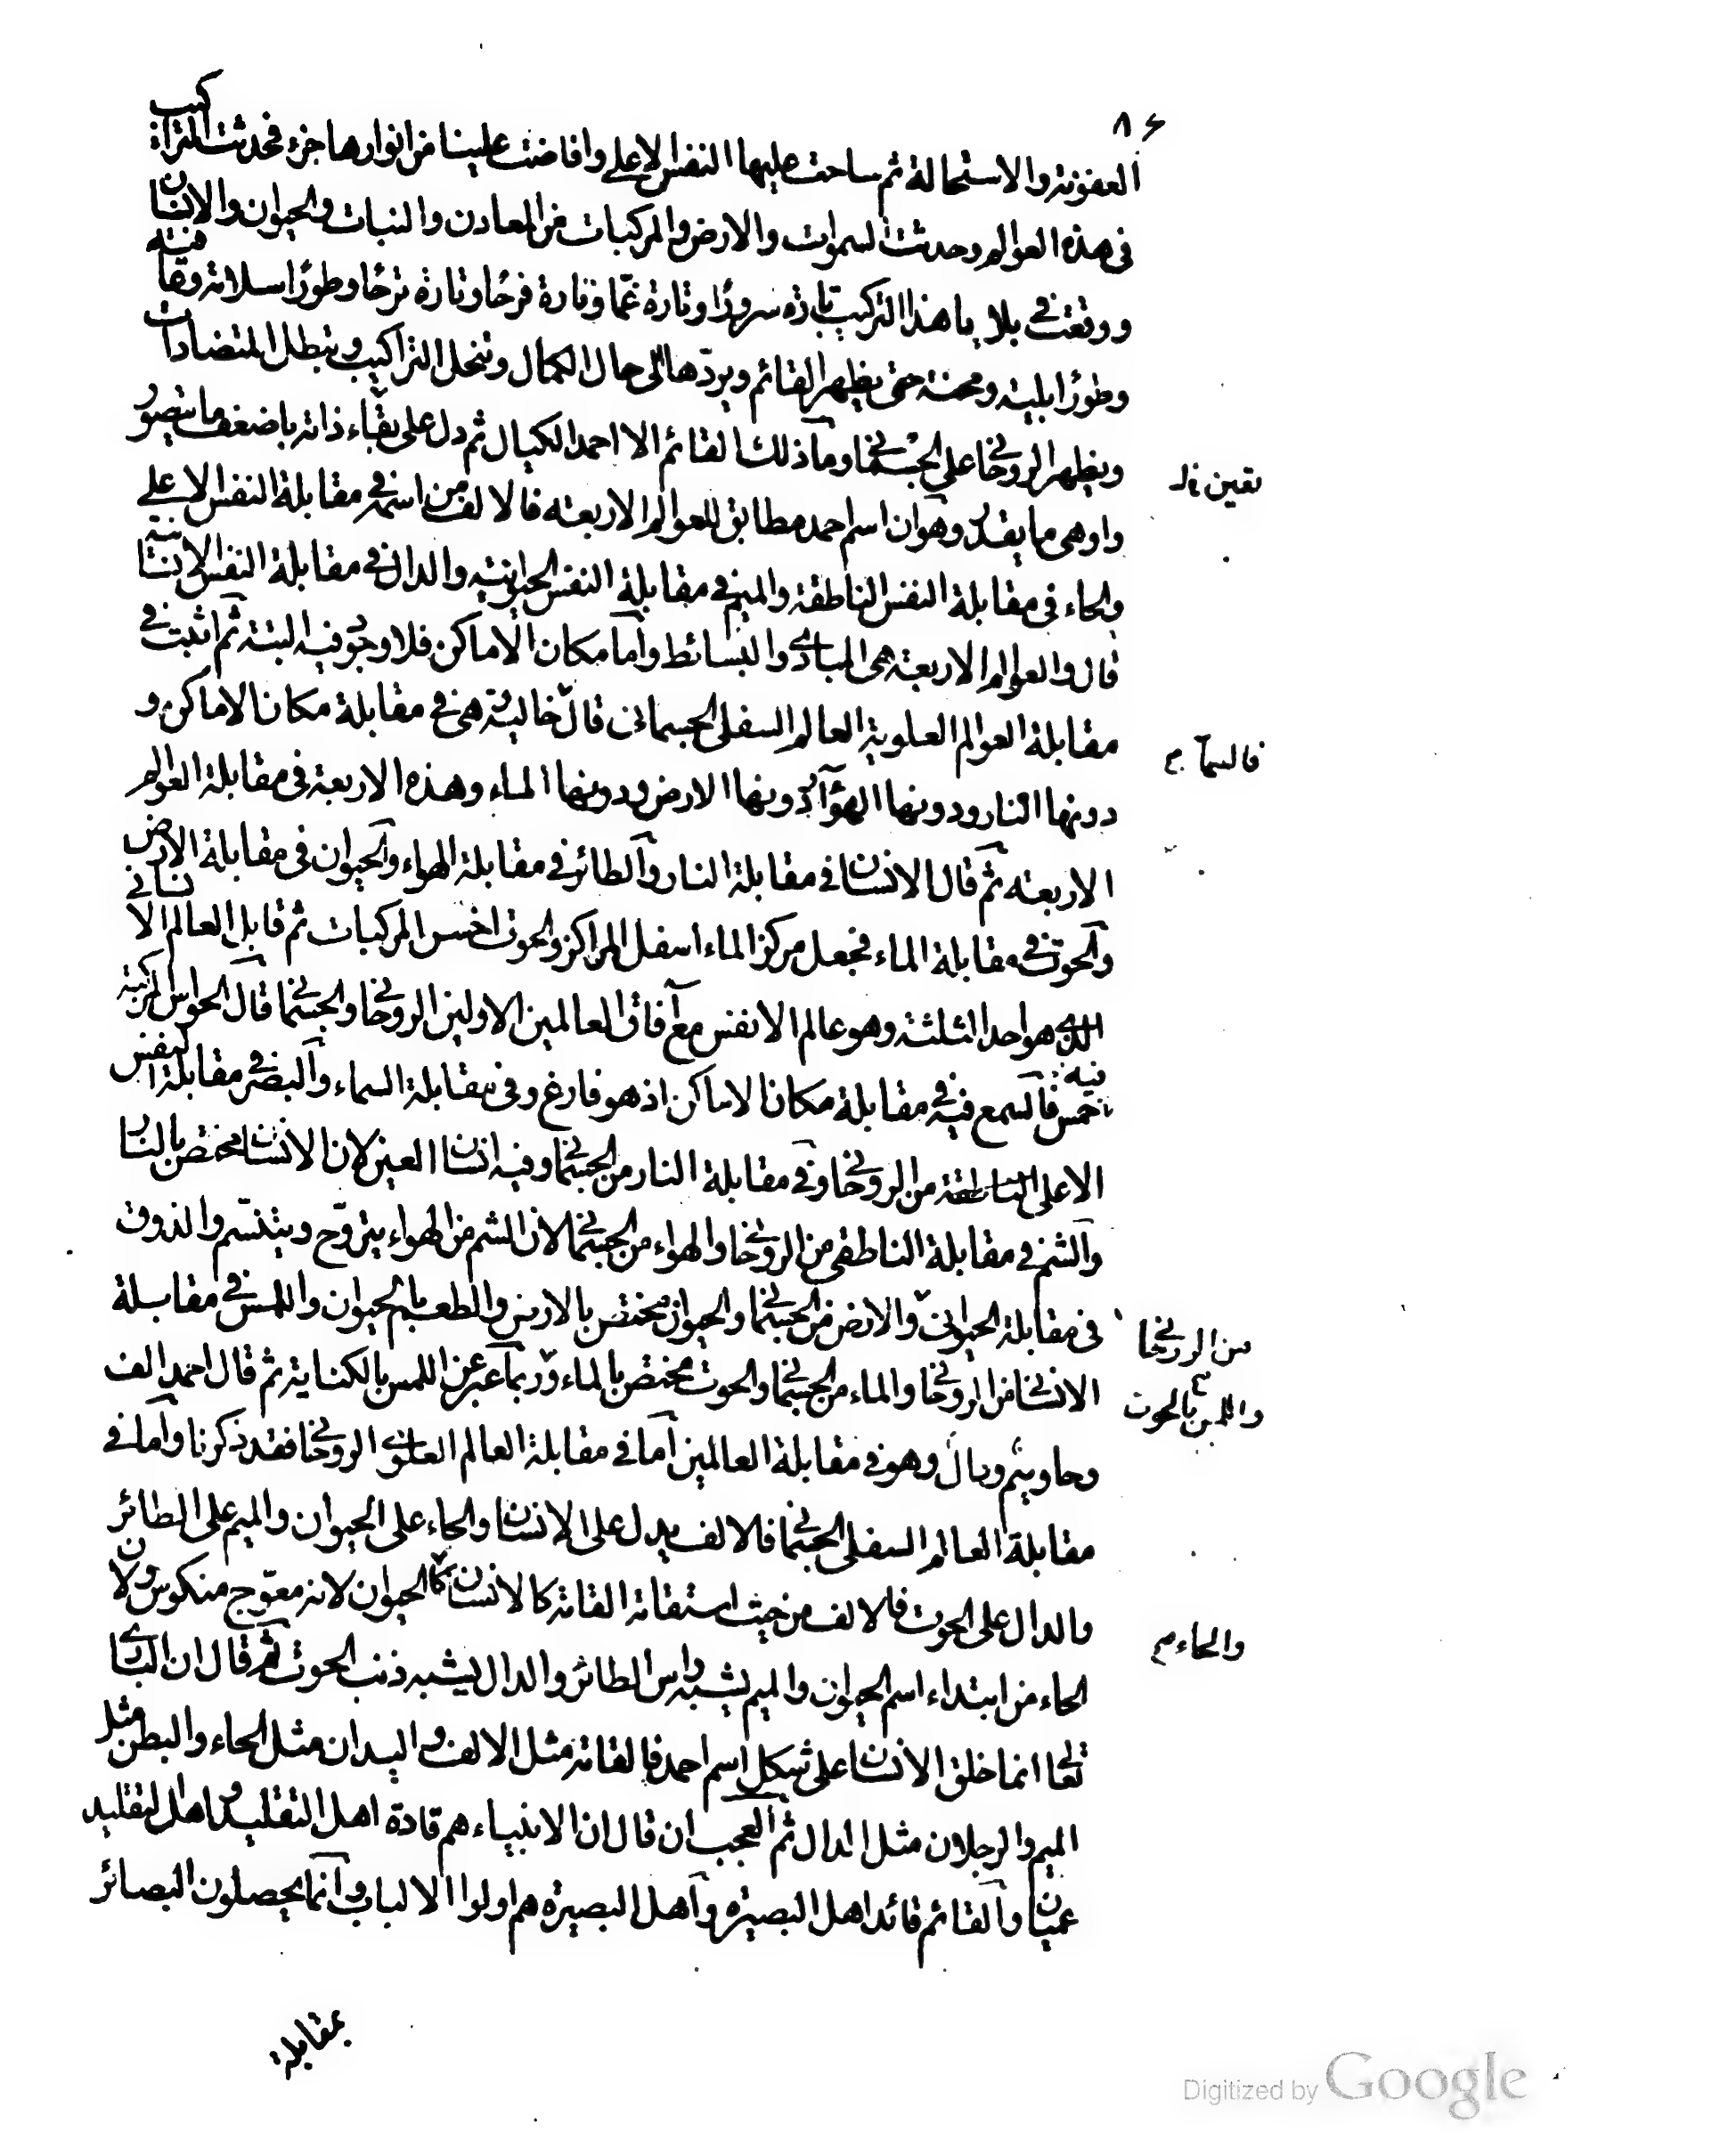 ٨۶
العفونة والاستحالة ثم ساحت عليها النفس الاعلى وافاضت علينا من انوارها جزء فحدثت التراكيب
فى هذه العوالم وحدثت السموات والارض والمركبات من المعادن والنبات والحيوان والانسان
ووقعت فى بلايا هذا التركيب تارة سرورا وتارة غمّا وتارة فرحًا وتارة ترحًا وطورًا سلامة وعافية
وطورًا بلية ومحنة حتى يظهر القائم ويردّها الى حال الكمال وتنحل التراكيب ويبطل المتضادات
ويظهر الروحانى على الجسمانى وما ذلك القائم الا احمد الكيال ثم دل على تعيّن ذاته باضعف ما يتصور
تعين خ
واوهى ما يقدر وهو ان اسم احمد مطابق للعوالم الاربعة فالالف من اسمه فى مقابلة النفس الاعلى
والحاء فى مقابلة النفس الناطقة والميم فى مقابلة النفس الحيوانية والدال فى مقابلة النفس الانسانية
قال والعوالم الاربعة هى المبادى والبسائط واما مكان الاماكن فلا وجود فيه البتة ثم اثبت فى
مقابلة العوالم العلوية العالم السفلى الجسمانى قال خالية هى فى مقابلة مكان الاماكن و
فالسماء
دونها النار ودونها الهواء ودونها الارض ودونها الماء وهذه الاربعة فى مقابلة العوالم
الاربعة ثم قال الانسان فى مقابلة النار والطائر فى مقابلة الهواء والحيوان فى مقابلة الارض
والحوت فى مقابلة الماء فجعل مركز الماء اسفل المراكز والحوت اخس المركبات ثم قابل العالم الانسانى
الذى هو احد الثلثة وهو عالم الانفس مع آفاق العالمين الاولين الروحانى والجسمانى قال الحواس المركبة
فيه خمس فالسمع فيه فى مقابلة مكان الاماكن اذ هو فارغ وفى مقابلة السماء والبصر فى مقابلة النفس
الاعلى من الروحانى وفى مقابلة النار من الجسمانى وفيه انسان العين لان الانسان مختص بالنار
والشم فى مقابلة الناطقى من الروحانى والهواء من الجسمانى لان الشم من الهواء يتروّح ويتنسّم والذوق
فى مقابلة الحيوانى والارض من الجسمانى والحيوان مختص بالارض والطعم بالحيوان واللمس فى مقابلة
من الروحانى
الانسانى من الروحانى والماء من الجسمانى والحوت مختص بالماء وربما عبر عن اللمس بالكناية ثم قال احمد الف
واللمس بالحوت
وحا وميم ودال وهو فى مقابلة العالمين اما فى مقابلة العالم العلوى الروحانى فقد ذكرنا واما فى
مقابلة العالم السفلى الجسمانى فالالف يدل على الانسان والحاء على الحيوان والميم على الطائر
والدال على الحوت فالالف من حيث استقامة القامة كالانسان كالحيوان لانه معوّج منكوس ولان
والحاء
الحاء من ابتداء اسم الحيوان والميم يشبه راس الطائر والدال يشبه ذنب الحوت ثم قال ان البارى
تعالى انما خلق الانسان على شكل اسم احمد فالقامة مثل الالف واليدان مثل الحاء والبطن مثل
الميم والرجلان مثل الدال ثم العجب ان قال ان الانبياء هم قادة اهل التقليد واهل التقليد
عميان والقائم قائد اهل البصيرة واهل البصيرة هم اولوا الالباب وانما يحصلون البصائر
بمقابلة
Digitized by Google